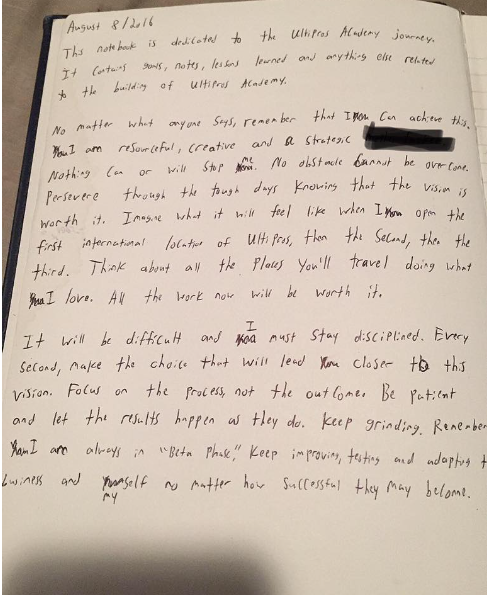 August 8/2016
This notebook is dedicated to the Ultipros Academy journey.
It contains goals, notes, lessons learned and anything else related
to the building of Ultipros Academy.
No matter what anyone says, remember that I can achieve this.
I am resourceful, creative and a strategic
Nothing can or will stop me. No obstacle cannot be overcome.
Persevere through the tough days knowing that the vision is
worth it. Imagine what it will feel like when I open the
first international location of Ultipros, then the second, then the
third. Think about all the places you'll travel doing what
I love. All the work now will be worth it.
It will be difficult and I must stay disciplined. Every
second, make the choice that will lead closer to this
vision. Focus on the process, not the outcome. Be patient
and let the results happen as they do. Keep grinding. Remember
I am always in "Beta Phase," Keep improving, testing and adapting t
business and myself no matter how successful they may become.